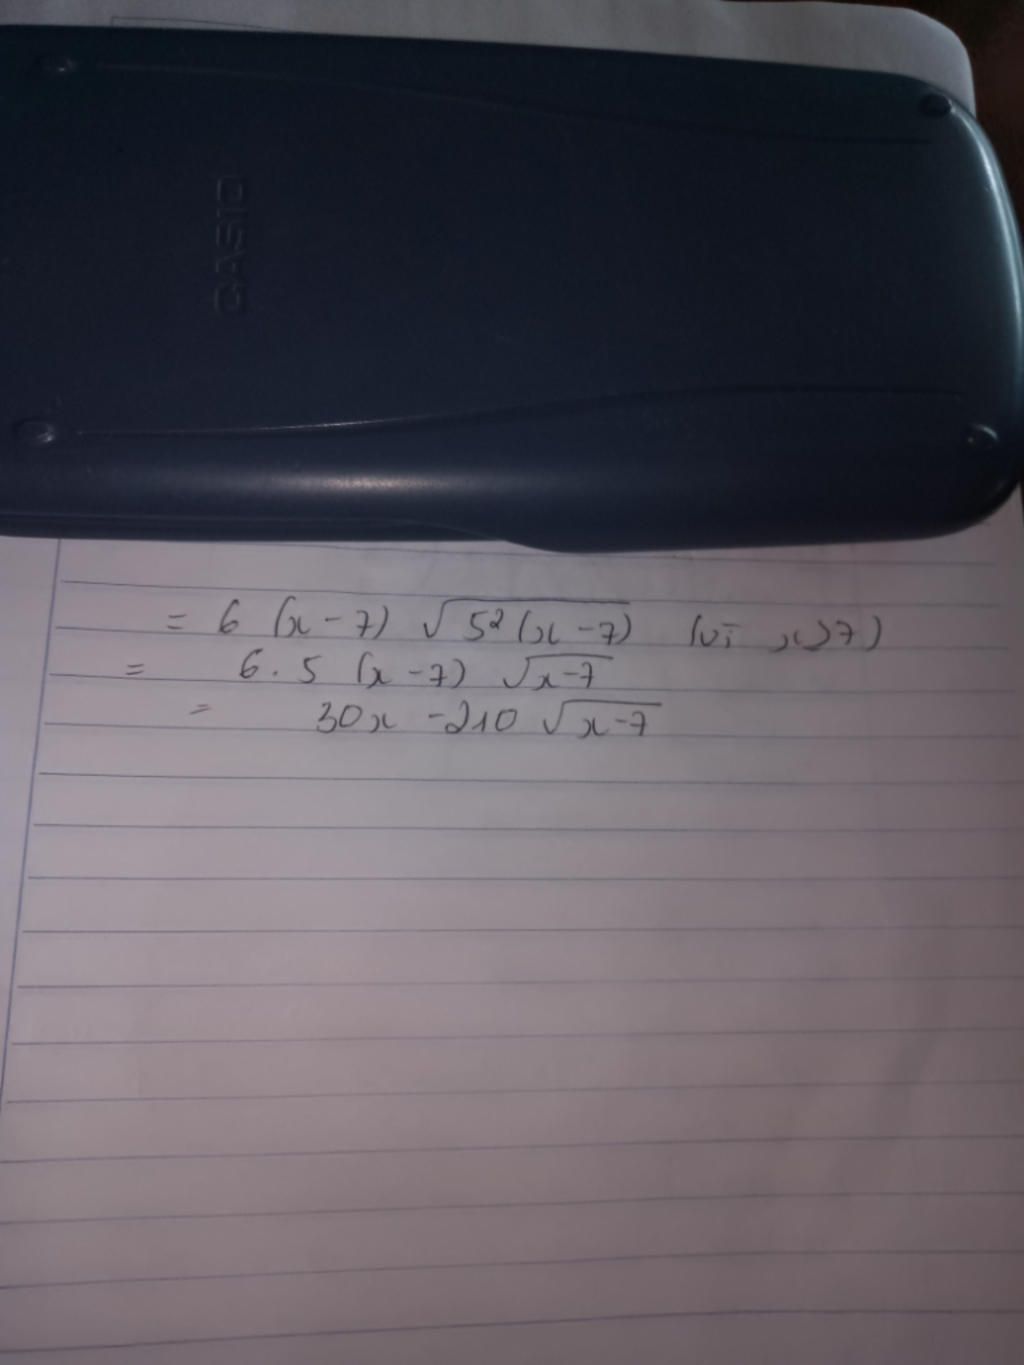 CASIO
= 6 (x - 7) √5²(x - 7) (vì x>7)
= 6.5 (x - 7) √x-7
= 30x - 210 √x-7